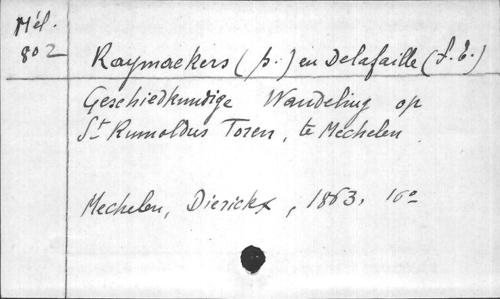 Mél.
802
Raymaekers (p.) en Delafaille (f. E.)
Geschiedkundige Wandeling op
St Rumoldus Toren, te Mechelen
Mechelen, Dierickx, 1863. 16°